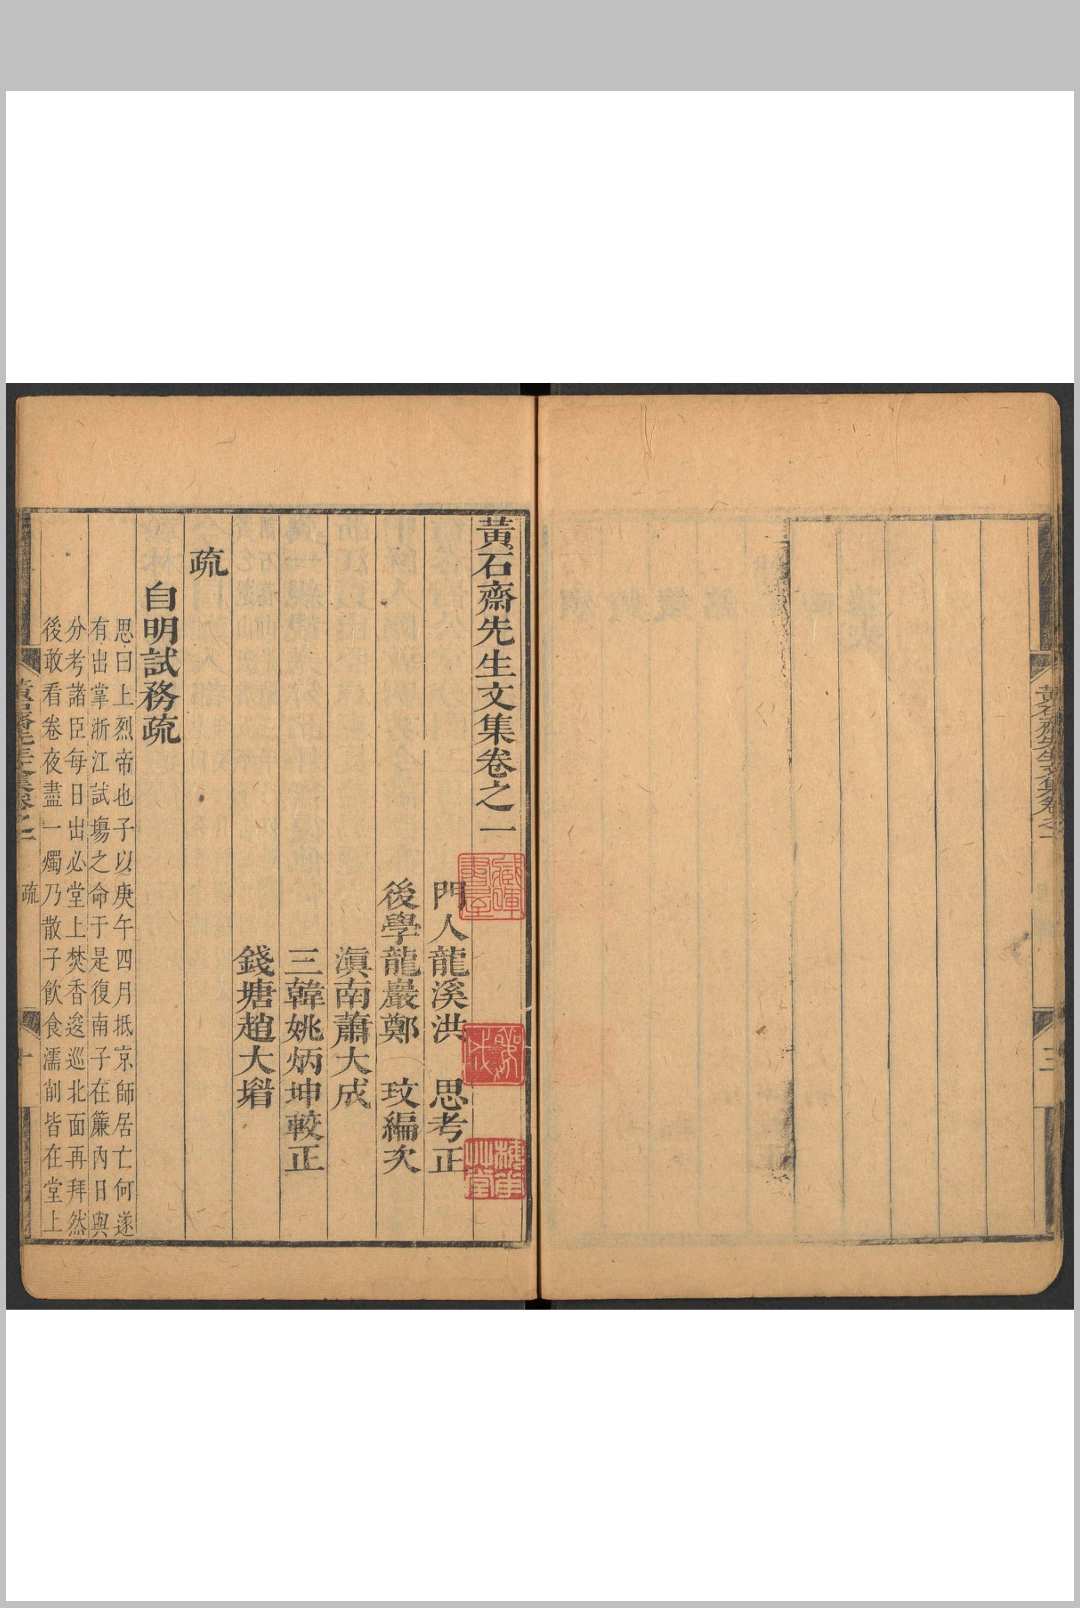 黃石齋先生文集卷之一
三
黃石齋先生文集卷之一
門人龍溪洪 思考正
後學龍巖鄭 玟編次
滇南蕭大成
三韓姚炳坤較正
錢塘趙大堦
疏
自明試務疏
思曰上烈帝也子以庚午四月抵京師居亡何遂
有出掌浙江試塲之命于是復南子在簾內日與
分考諸臣每日出必堂上焚香逡巡北面再拜然
後敢看卷夜盡一燭乃散子飲食濡削皆在堂上
黃石齋先生文集卷之一
疏
一